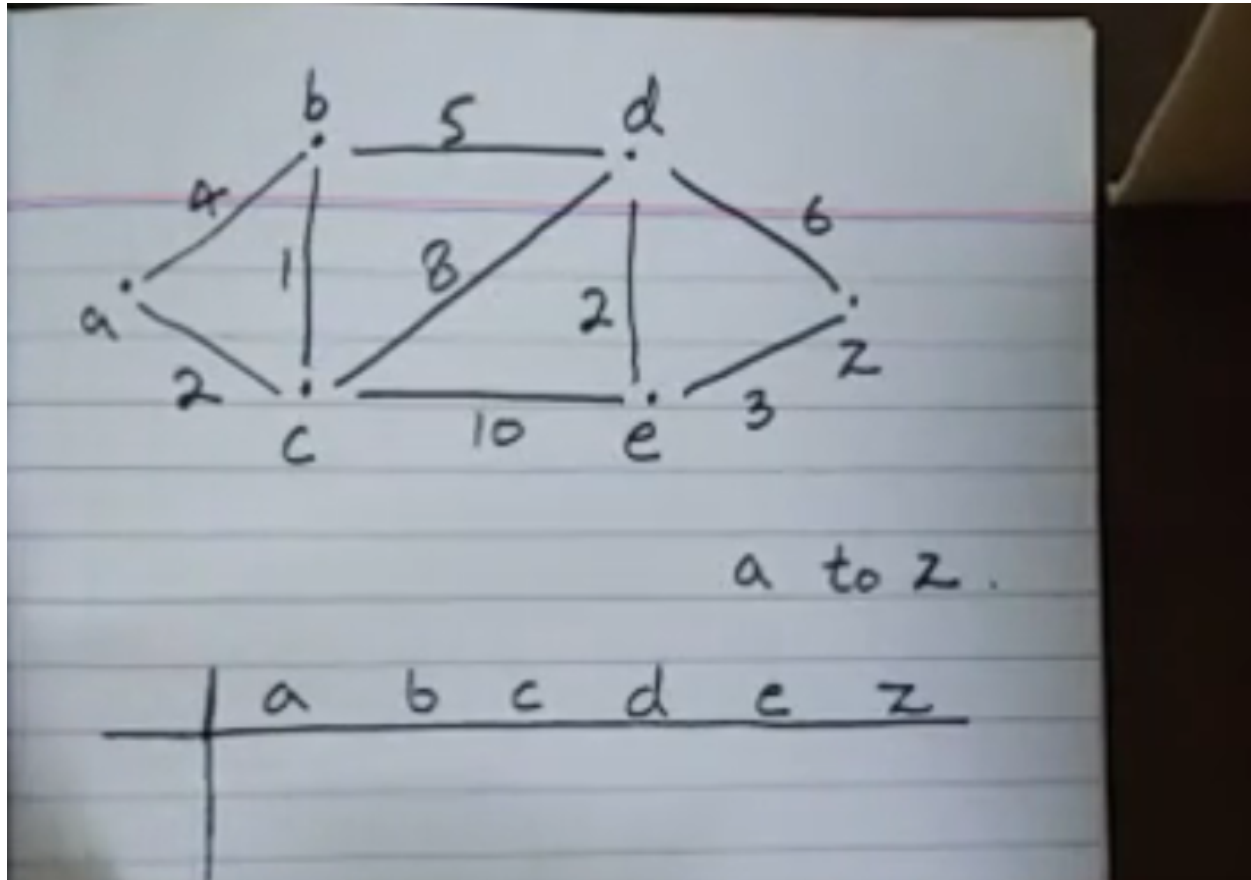 b 5 d
4 6
1 8 2
a z
2 3
c 10 e
a to z.
a b c d e z